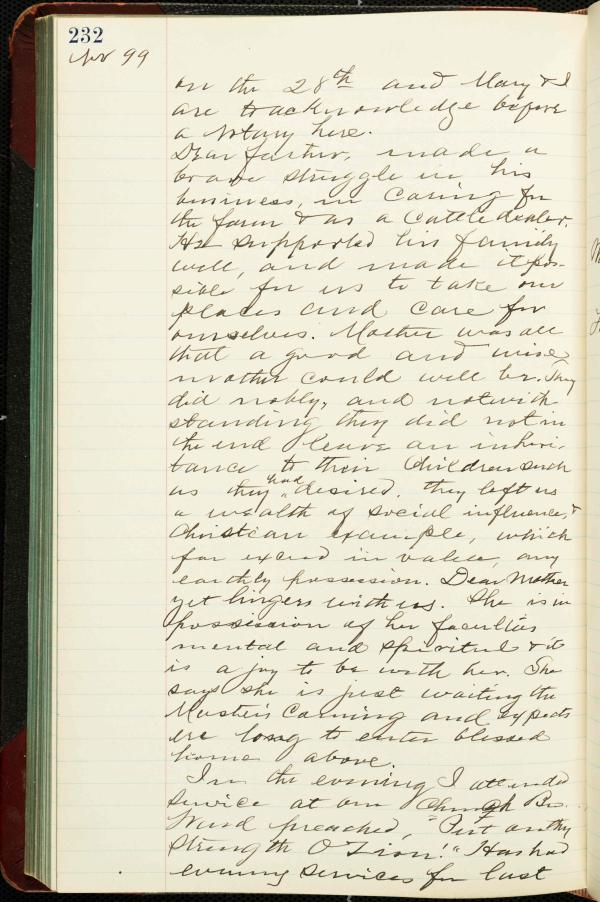 232
Nov 99
on the 28th and Mary & I
are to acknowledge before
a Notary here.
Dear father, made a
brave struggle in his
business, in Caring for
the farm & as a Cattle dealer.
He supported his family
well, and made it pos-
sible for us to take our
places and care for
ourselves. Mother was all
that a good and wise
mother could well be. They
did nobly, and notwith-
standing they did not in
the end leave an inheri-
tance to their Children such
as they had desired. they left us
a wealth of social influence, &
Christian example, which
far exceed in value, any
earthly possession. Dear Mother
yet lingers with us. She is in
possession of her faculties
mental and spiritul & it
is a joy to be with her. She
says she is just waiting the
Master's Coming and expects
ere long to enter blessed
home above.
In the evening I attended
service at our Church Bro.
preached, "Put on thy
Strength O Zion." Has had
evening services for last